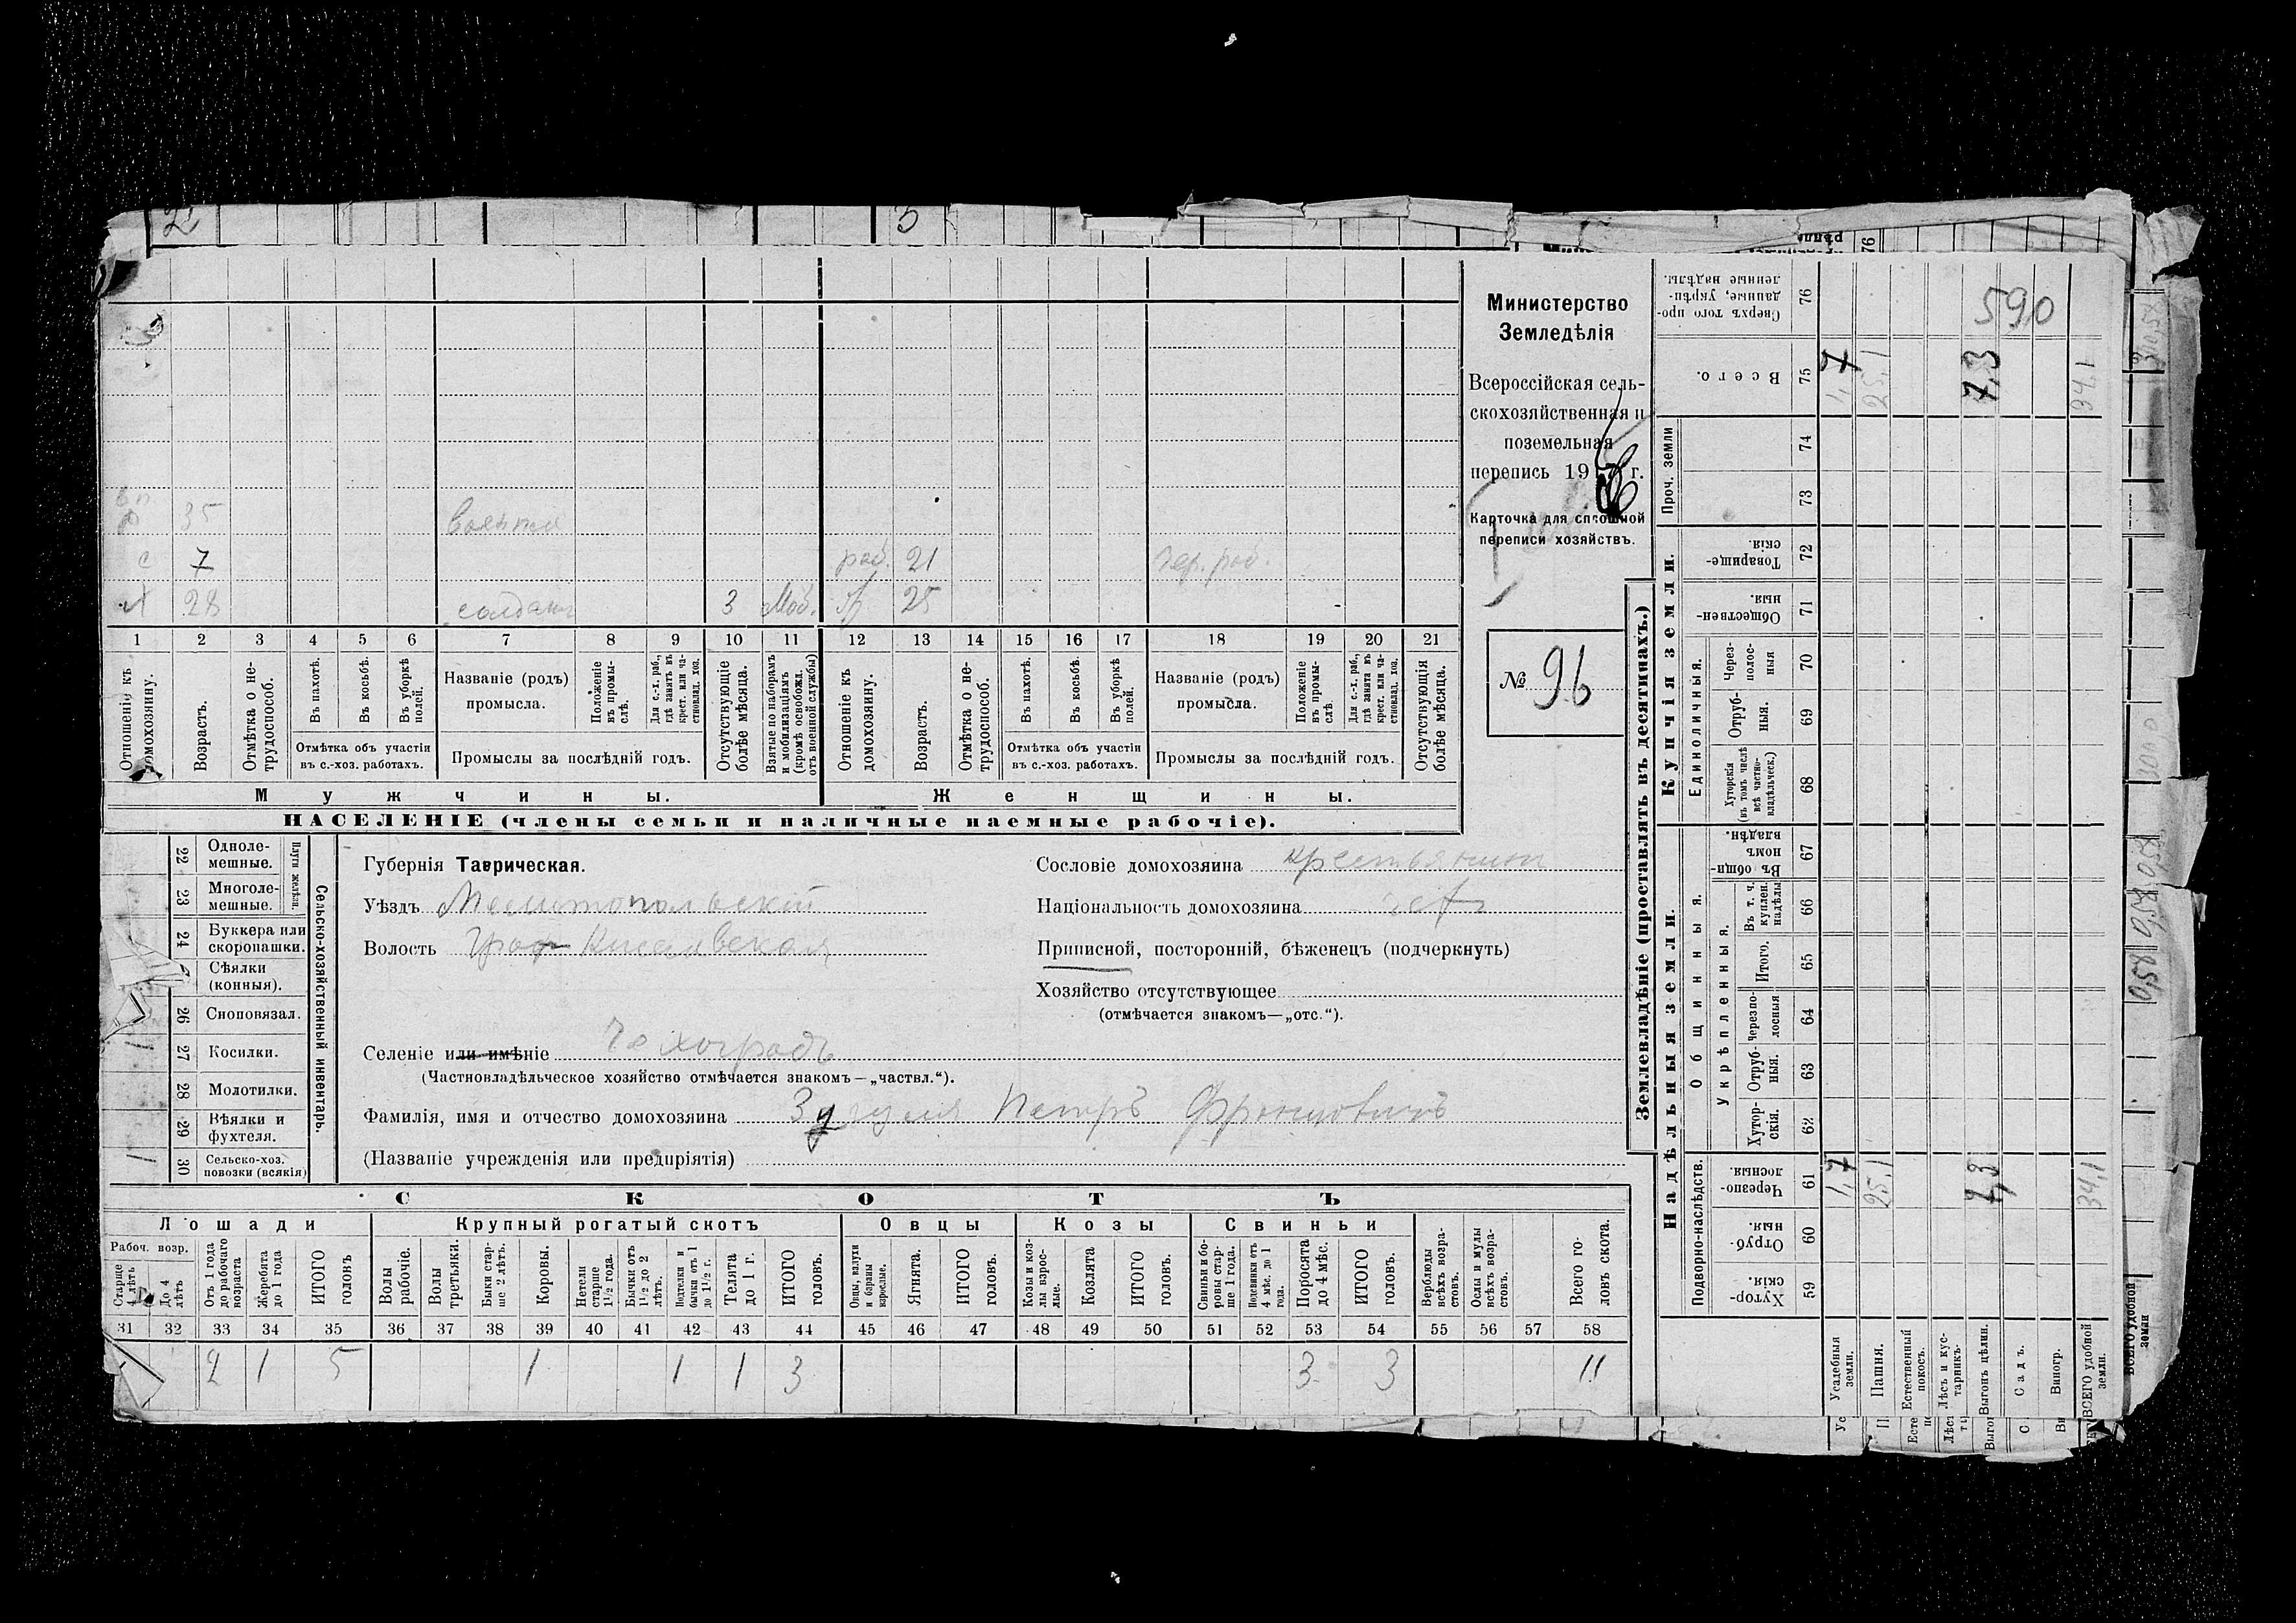 2
5
Министерство
Земледѣлія
Всероссійская сель-
скохозяйственная и
поземельная
перепись 19 г.
Карточка для сплошной
переписи хозяйствъ.
№ 96
35 военно
с 7 раб. 21 чер. раб.
х 28 солдатъ 3 Моб. 25
1 2 3 4 5 6 7 8 9 10 11 12 13 14 15 16 17 18 19 20 21
Отношеніе къ домохозяину.
Возрастъ.
Отмѣтка о не-трудоспособ.
Въ пахотѣ.
Въ косьбѣ.
Въ уборкѣ полей.
Отмѣтка объ участіи въ с.-хоз. работахъ.
Названіе (родъ) промысла.
Положеніе въ промы-слѣ.
Для с.-х. раб., гдѣ занятъ въ крест. или ча-стновлад. хоз.
Промыслы за послѣдній годъ.
Отсутствующіе болѣе мѣсяца.
Взятые по наборамъ и мобилизаціямъ (кромѣ освобожд. отъ военной службы)
Отношеніе къ домохозяину.
Возрастъ.
Отмѣтка о не-трудоспособ.
Въ пахотѣ.
Въ косьбѣ.
Въ уборкѣ полей.
Отмѣтка объ участіи въ с.-хоз. работахъ.
Названіе (родъ) промысла.
Положеніе въ промы-слѣ.
Для с.-х. раб., гдѣ занята въ крест. или ча-стновлад. хоз.
Промыслы за послѣдній годъ.
Отсутствующія болѣе мѣсяца.
Мужчины. Женщины.
НАСЕЛЕНІЕ (члены семьи и наличные наемные рабочіе).
Сельско-хозяйственный инвентарь.
Плуги желѣзн.
22 Одноле-мешные.
23 Многоле-мешные.
24 Буккера или скоропашки.
Сѣялки (конныя).
26 Сноповязал.
27 Косилки. 1
28 Молотилки.
29 Вѣялки и фухтеля.
30 Сельско-хоз. повозки (всякія) 1
Губернія Таврическая.
Уѣздъ Мелитопольскій
Волость Граф Киселевская
Сословіе домохозяина крестьянин
Національность домохозяина чех
Приписной, посторонній, бѣженецъ (подчеркнуть)
Хозяйство отсутствующее
(отмѣчается знакомъ—„отс.“).
Селеніе или имѣніе Чехоградъ
(Частновладѣльческое хозяйство отмѣчается знакомъ—„частвл.“).
Фамилія, имя и отчество домохозяина Петръ Францовичъ
(Названіе учрежденія или предпріятія)
СКОТЪ
Лошади Крупный рогатый скотъ Овцы Козы Свиньи
Рабоч. возр.
Старше 4 лѣтъ
До 4 лѣтъ
Отъ 1 года до рабочаго возраста
Жеребята до 1 года
ИТОГО головъ
Волы рабочіе.
Волы третьяки.
Быки стар-ше 2 лѣтъ.
Коровы.
Нетели старше 1½ года.
Бычки отъ 1½ до 2 лѣтъ.
Подтелки и бычки отъ 1 до 1½ г.
Телята до 1 г.
ИТОГО головъ.
Овцы, валухи и бараны взрослые.
Ягнята.
ИТОГО головъ.
Козы и коз-лы взрос-лые.
Козлята
ИТОГО головъ.
Свиньи и бо-ровы стар-ше 1 года.
Подсвинки отъ 4 мѣс. до 1 года.
Поросята до 4 мѣс.
ИТОГО головъ.
Верблюды всѣхъ возра-стовъ.
Ослы и мулы всѣхъ возра-стовъ.
Всего го-ловъ скота.
31 32 33 34 35 36 37 38 39 40 41 42 43 44 45 46 47 48 49 50 51 52 53 54 55 56 57 58
2 1 5 1 1 1 3 3 3 11
Землевладѣніе (проставлять въ десятинахъ.)
Купчія земли.
Надѣльныя земли.
590
Сверхъ того про-данные, укрѣп-ленные надѣлы. 76
Всего. 75 1,7 25,1 7,3 34,1
Проч. земли
74
73
Товарище-скія. 72
Обществен-ныя. 71
Единоличныя.
Через-полос-ныя 70
Отруб-ныя. 69
Хуторскія (въ томъ числѣ всѣ частно-владѣльческ.) 68
Общинныя.
Въ общи-номъ владѣн. 67
Укрѣпленныя.
Въ т. ч. куплен. надѣлы 66
Итого. 65
Черезпо-лосныя 64
Отруб-ныя. 63
Хутор-скія. 62
Подворно-наслѣдств.
Черезпо-лосныя. 61 1,7 25,1 7,3 34,1
Отруб-ныя. 60
Хутор-скія. 59
Усадебныя земли.
Пашня.
Естественный покосъ.
Лѣсъ и кус-тарникъ
Выгонъ цѣлин.
Садъ.
Виногр.
ВСЕГО удобной земли.
ВСЕГО удобной земли
0,58 0,58 0,58